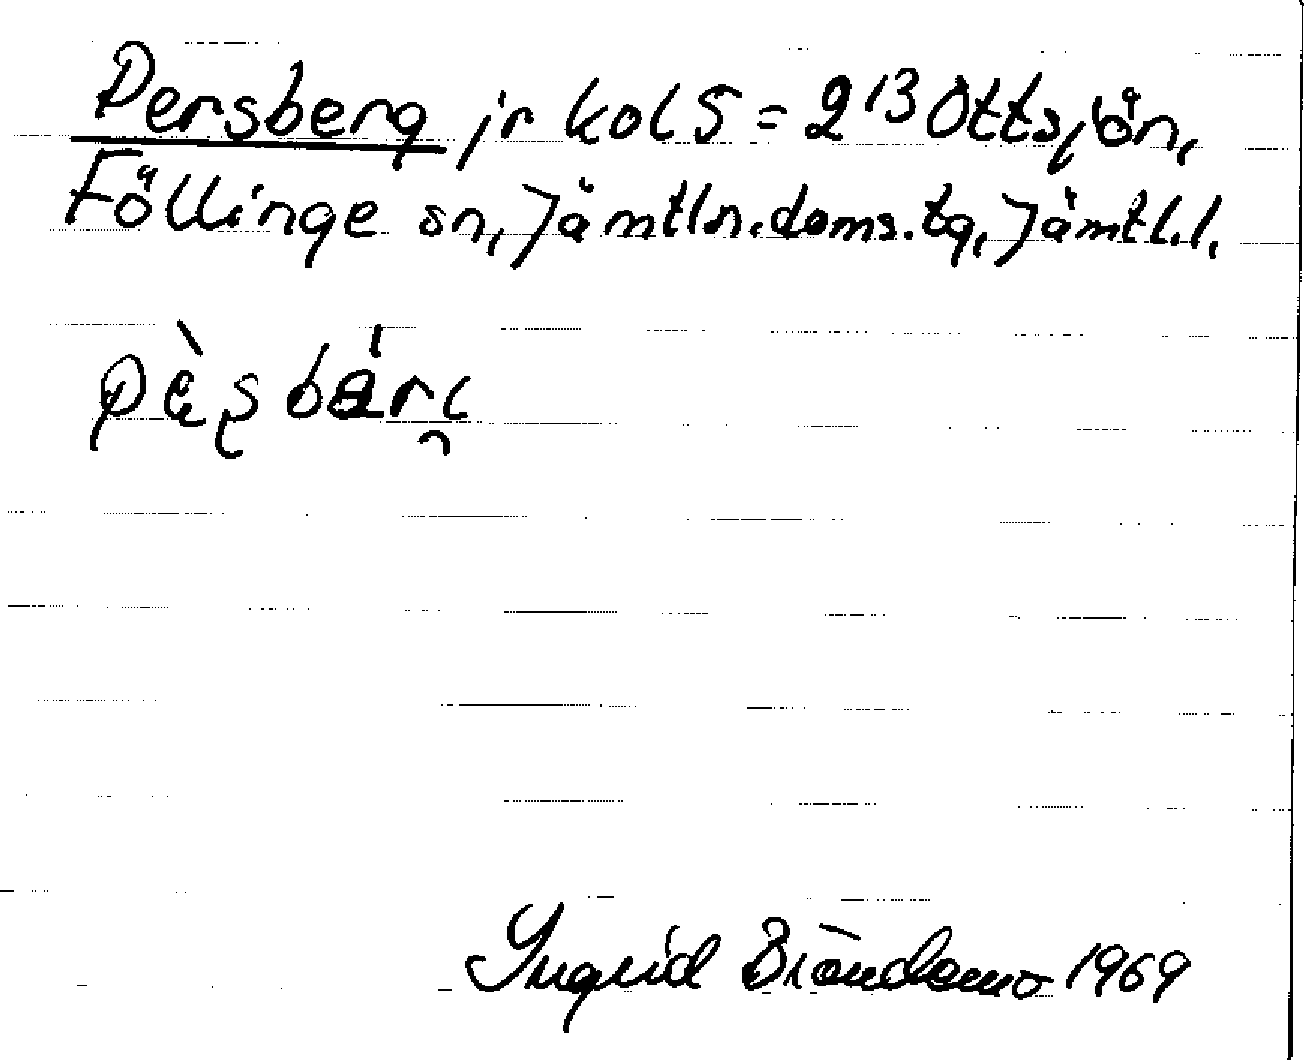 Persberg jr kol S = 2¹³ Ottsjön,
Föllinge sn, Jämtln. doms. tg, Jämtl. l.
Ingrid Brändemo 1969